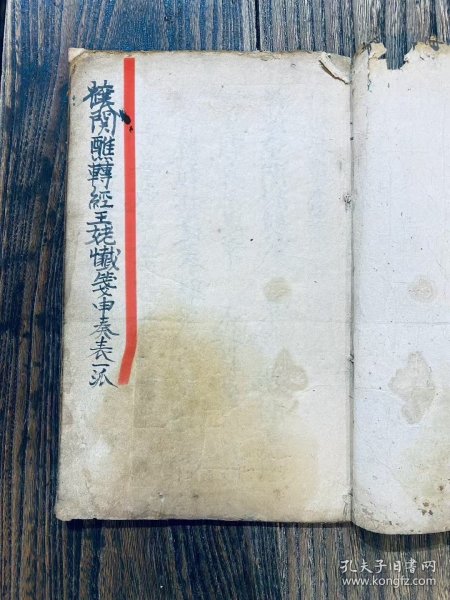 禳関醮轉經王姥懺箋申奏表一派
孔夫子旧书网
www.kongfz.com